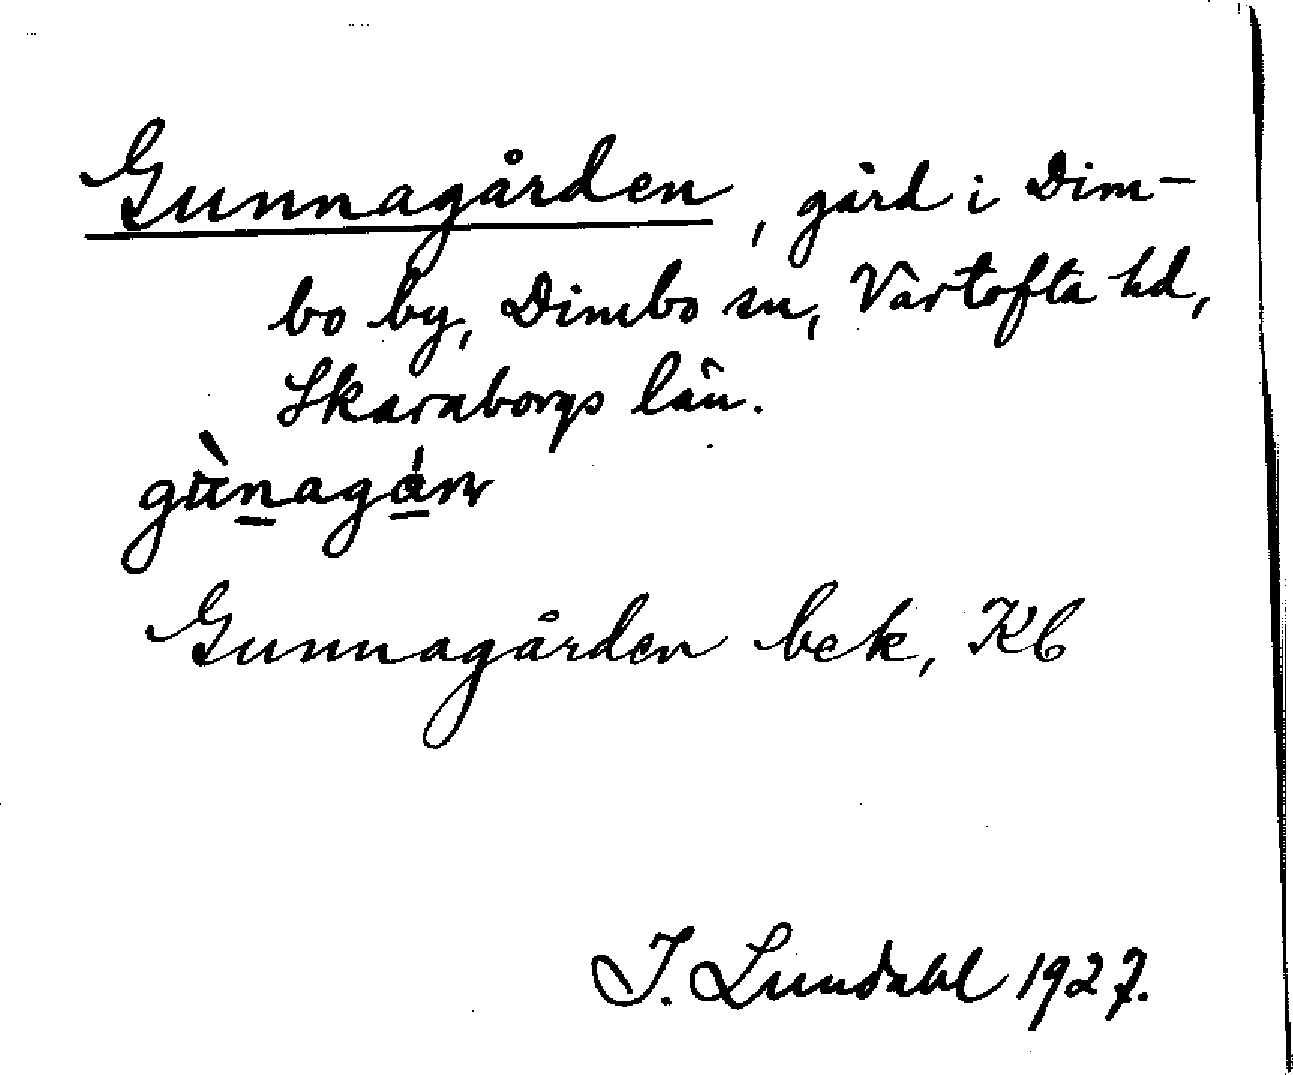 Gunnagården, gård i Dim-
bo by, Dimbo sn, Vartofta hd,
Skaraborgs län.
Gunnagården bek, Kb
I. Lundahl 1927.